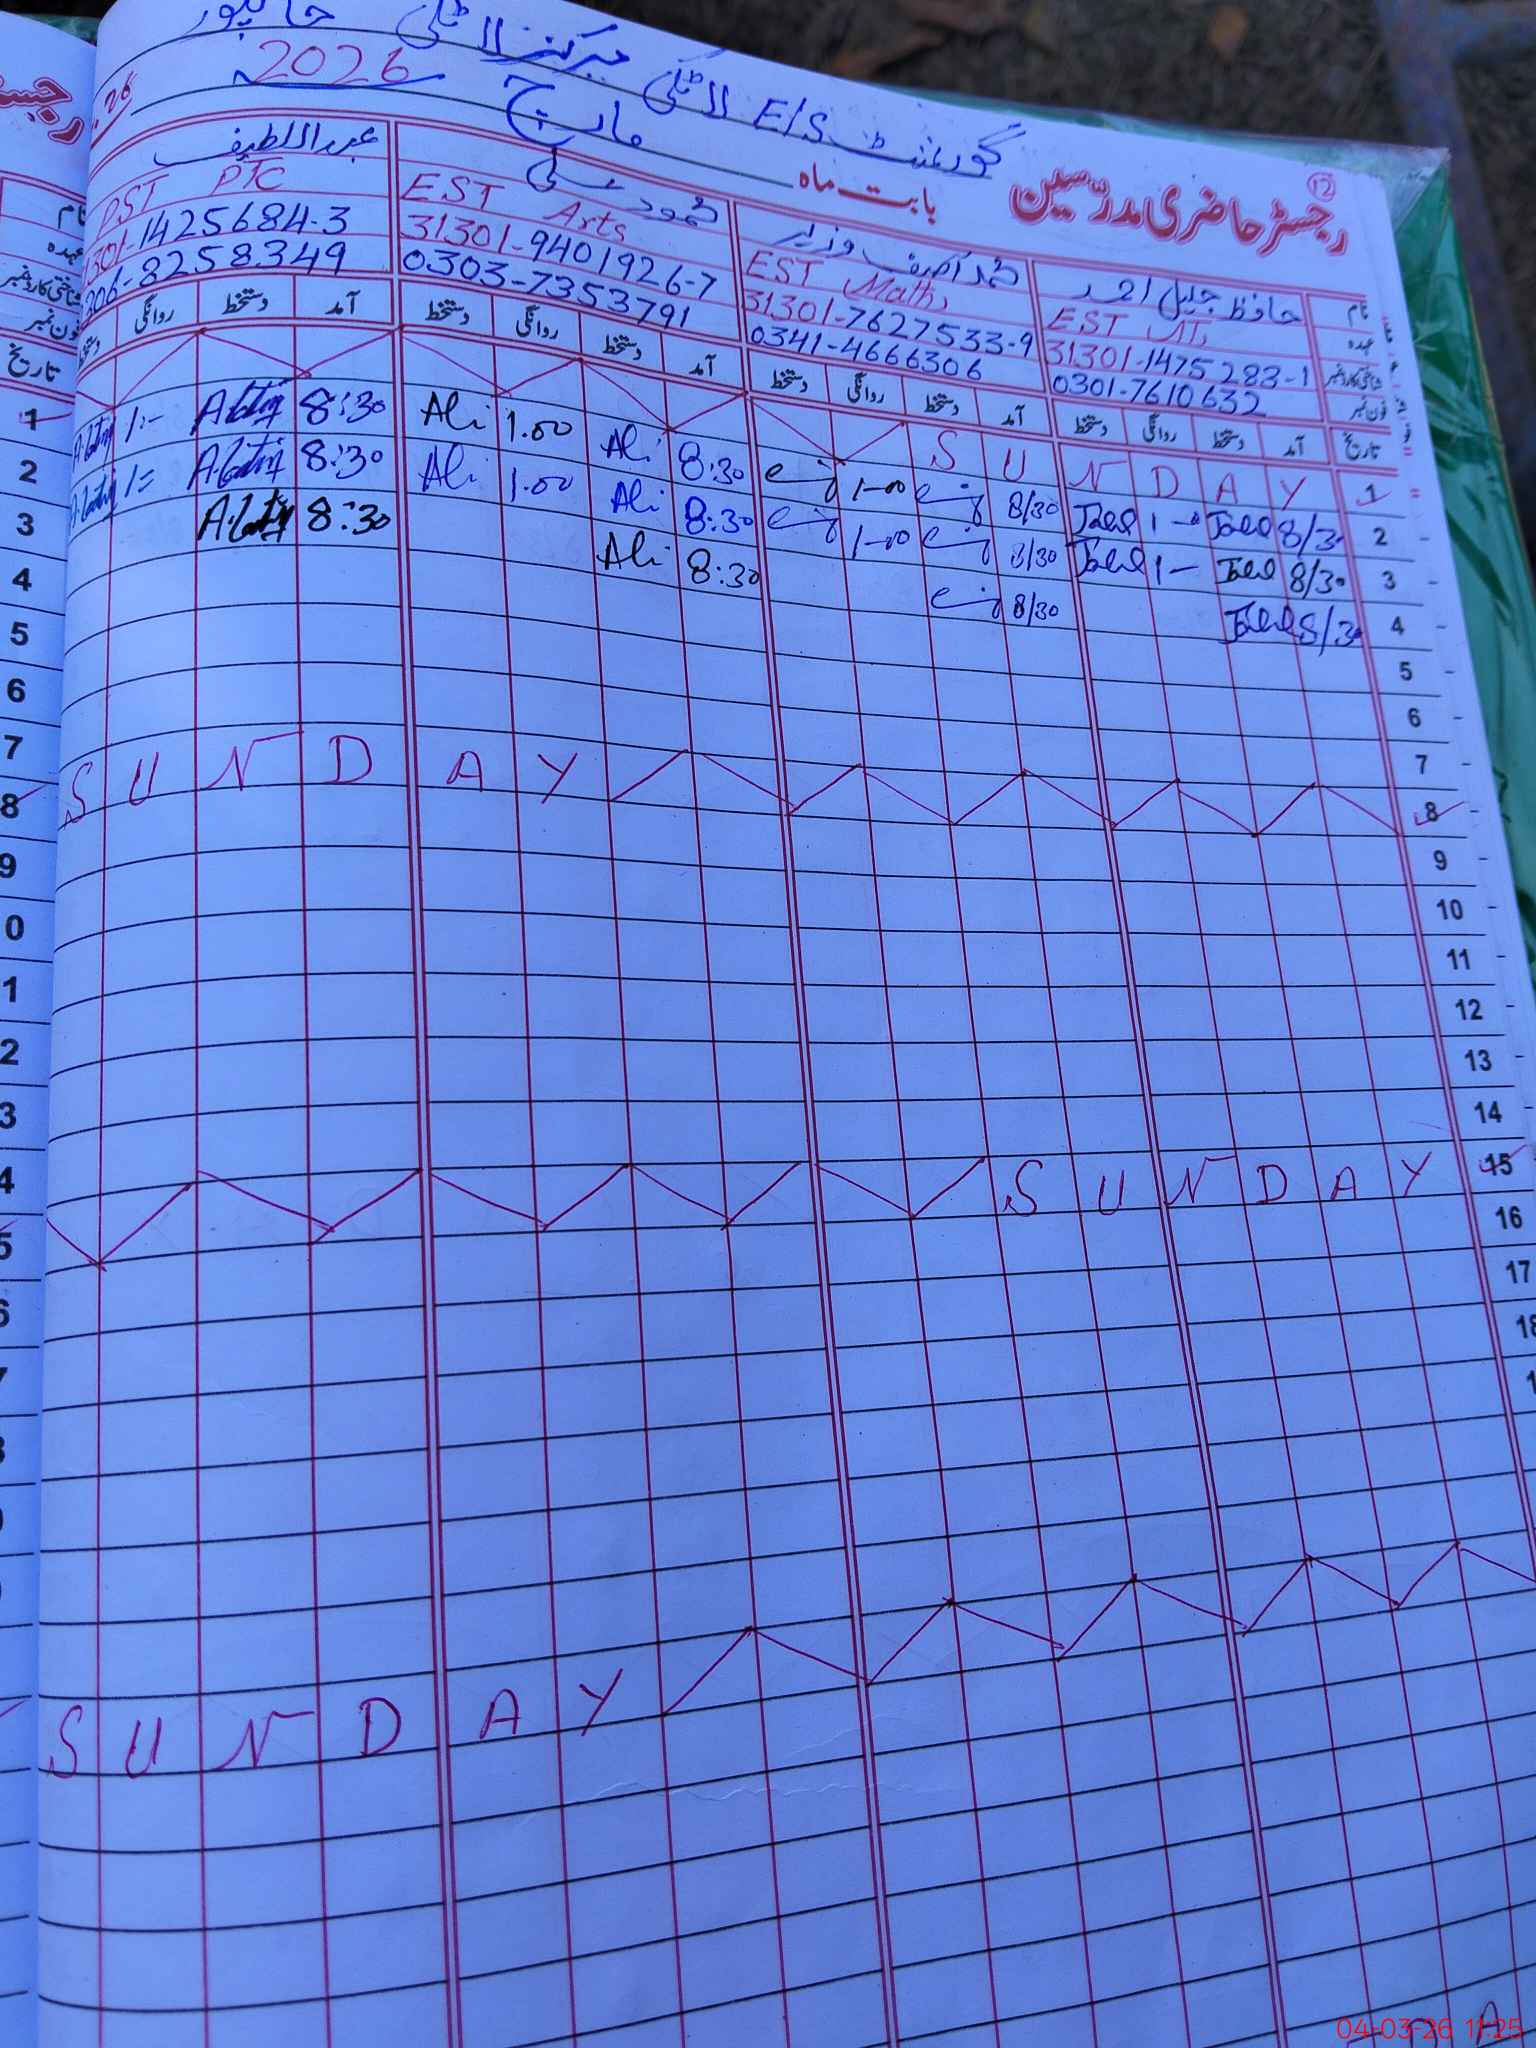 گورنمنٹ E/S لاٹکی مرکز لاٹکی جانپور
رجسٹر حاضری مدرسین بابت ماہ مارچ 2026
12
نام حافظ جلیل احمد
عہدہ EST
شناختی کارڈ نمبر 31301-1475283-1
فون نمبر 0301-7610632
محمد آصف وزیر
EST Math
31301-7627533-9
0341-4666306
محمود علی
EST Arts
31301-9401926-7
0303-7353791
عبداللطیف
PST PTC
301-1425684-3
306-8258349
تاریخ آمد دستخط روانگی دستخط آمد دستخط روانگی دستخط آمد دستخط روانگی دستخط آمد دستخط روانگی دستخط
1 S U N D A Y
2 8/30 1 8/30 1-00 8:30 Ali 1.00 Ali 8:30 1:-
3 8/30 1- 8/30 1-00 8:30 Ali 1.00 Ali 8:30 1=
4 8/30 8/30 8:30 Ali 8:30
5
6
7
8 S U N D A Y
9
10
11
12
13
14
15 S U N D A Y
16
17
18
S U N D A Y
A
رجسٹر
نام
عہدہ
شناختی کارڈ نمبر
فون نمبر
تاریخ
1
2
3
4
5
6
7
8
9
0
1
2
3
4
5
6
04-03-26 11:25